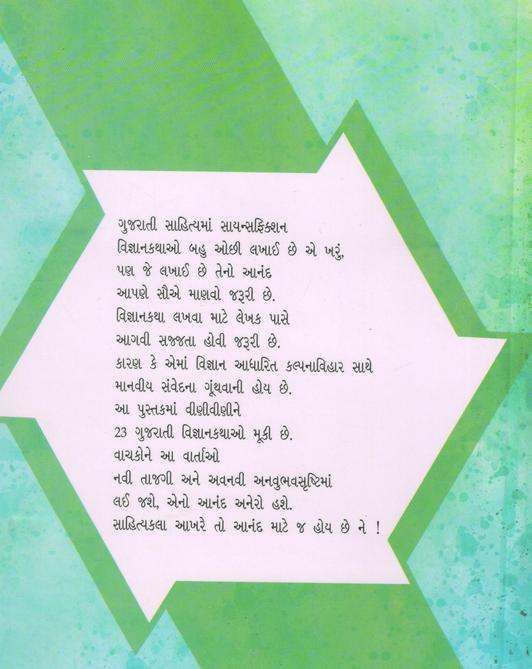 ગુજરાતી સાહિત્યમાં સાયન્સફિક્શન
વિજ્ઞાનકથાઓ બહુ ઓછી લખાઈ છે એ ખરું,
પણ જે લખાઈ છે તેનો આનંદ
આપણે સૌએ માણવો જરૂરી છે.
વિજ્ઞાનકથા લખવા માટે લેખક પાસે
આગવી સજ્જતા હોવી જરૂરી છે.
કારણ કે એમાં વિજ્ઞાન આધારિત કલ્પનાવિહાર સાથે
માનવીય સંવેદના ગૂંથવાની હોય છે.
આ પુસ્તકમાં વીણીવીણીને
23 ગુજરાતી વિજ્ઞાનકથાઓ મૂકી છે.
વાચકોને આ વાર્તાઓ
નવી તાજગી અને અવનવી અનવુભવસૃષ્ટિમાં
લઈ જશે, એનો આનંદ અનેરો હશે.
સાહિત્યકલા આખરે તો આનંદ માટે જ હોય છે ને !